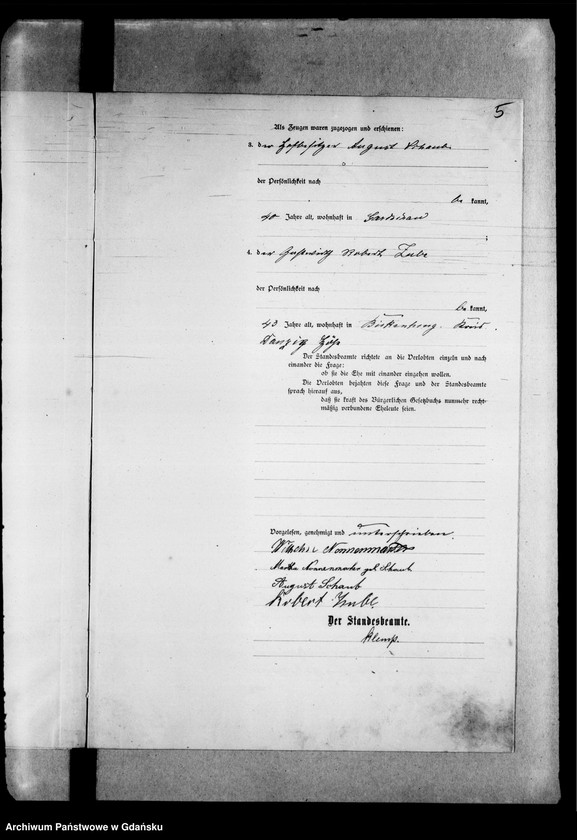 5
Als Zeugen waren zugezogen und erschienen:
3. der Hofbesitzer August Schaub
der Persönlichkeit nach
be kannt,
40 Jahre alt, wohnhaft in
;
4. der Gastwirth Robert
der Persönlichkeit nach
be kannt,
43 Jahre alt, wohnhaft in Kreis
Danziger Höhe
Der Standesbeamte richtete an die Verlobten einzeln und nach
einander die Frage:
ob sie die Ehe mit einander eingehen wollen.
Die Verlobten bejahten diese Frage und der Standesbeamte
sprach hierauf aus,
daß sie kraft des Bürgerlichen Gesetzbuchs nunmehr recht-
mäßig verbundene Eheleute seien.
Vorgelesen, genehmigt und unterschrieben.
Wilhelm Nonnenmacher
Martha Nonnenmacher geb. Schaub
August Schaub
Robert
Der Standesbeamte.
Klemp.
Archiwum Państwowe w Gdańsku